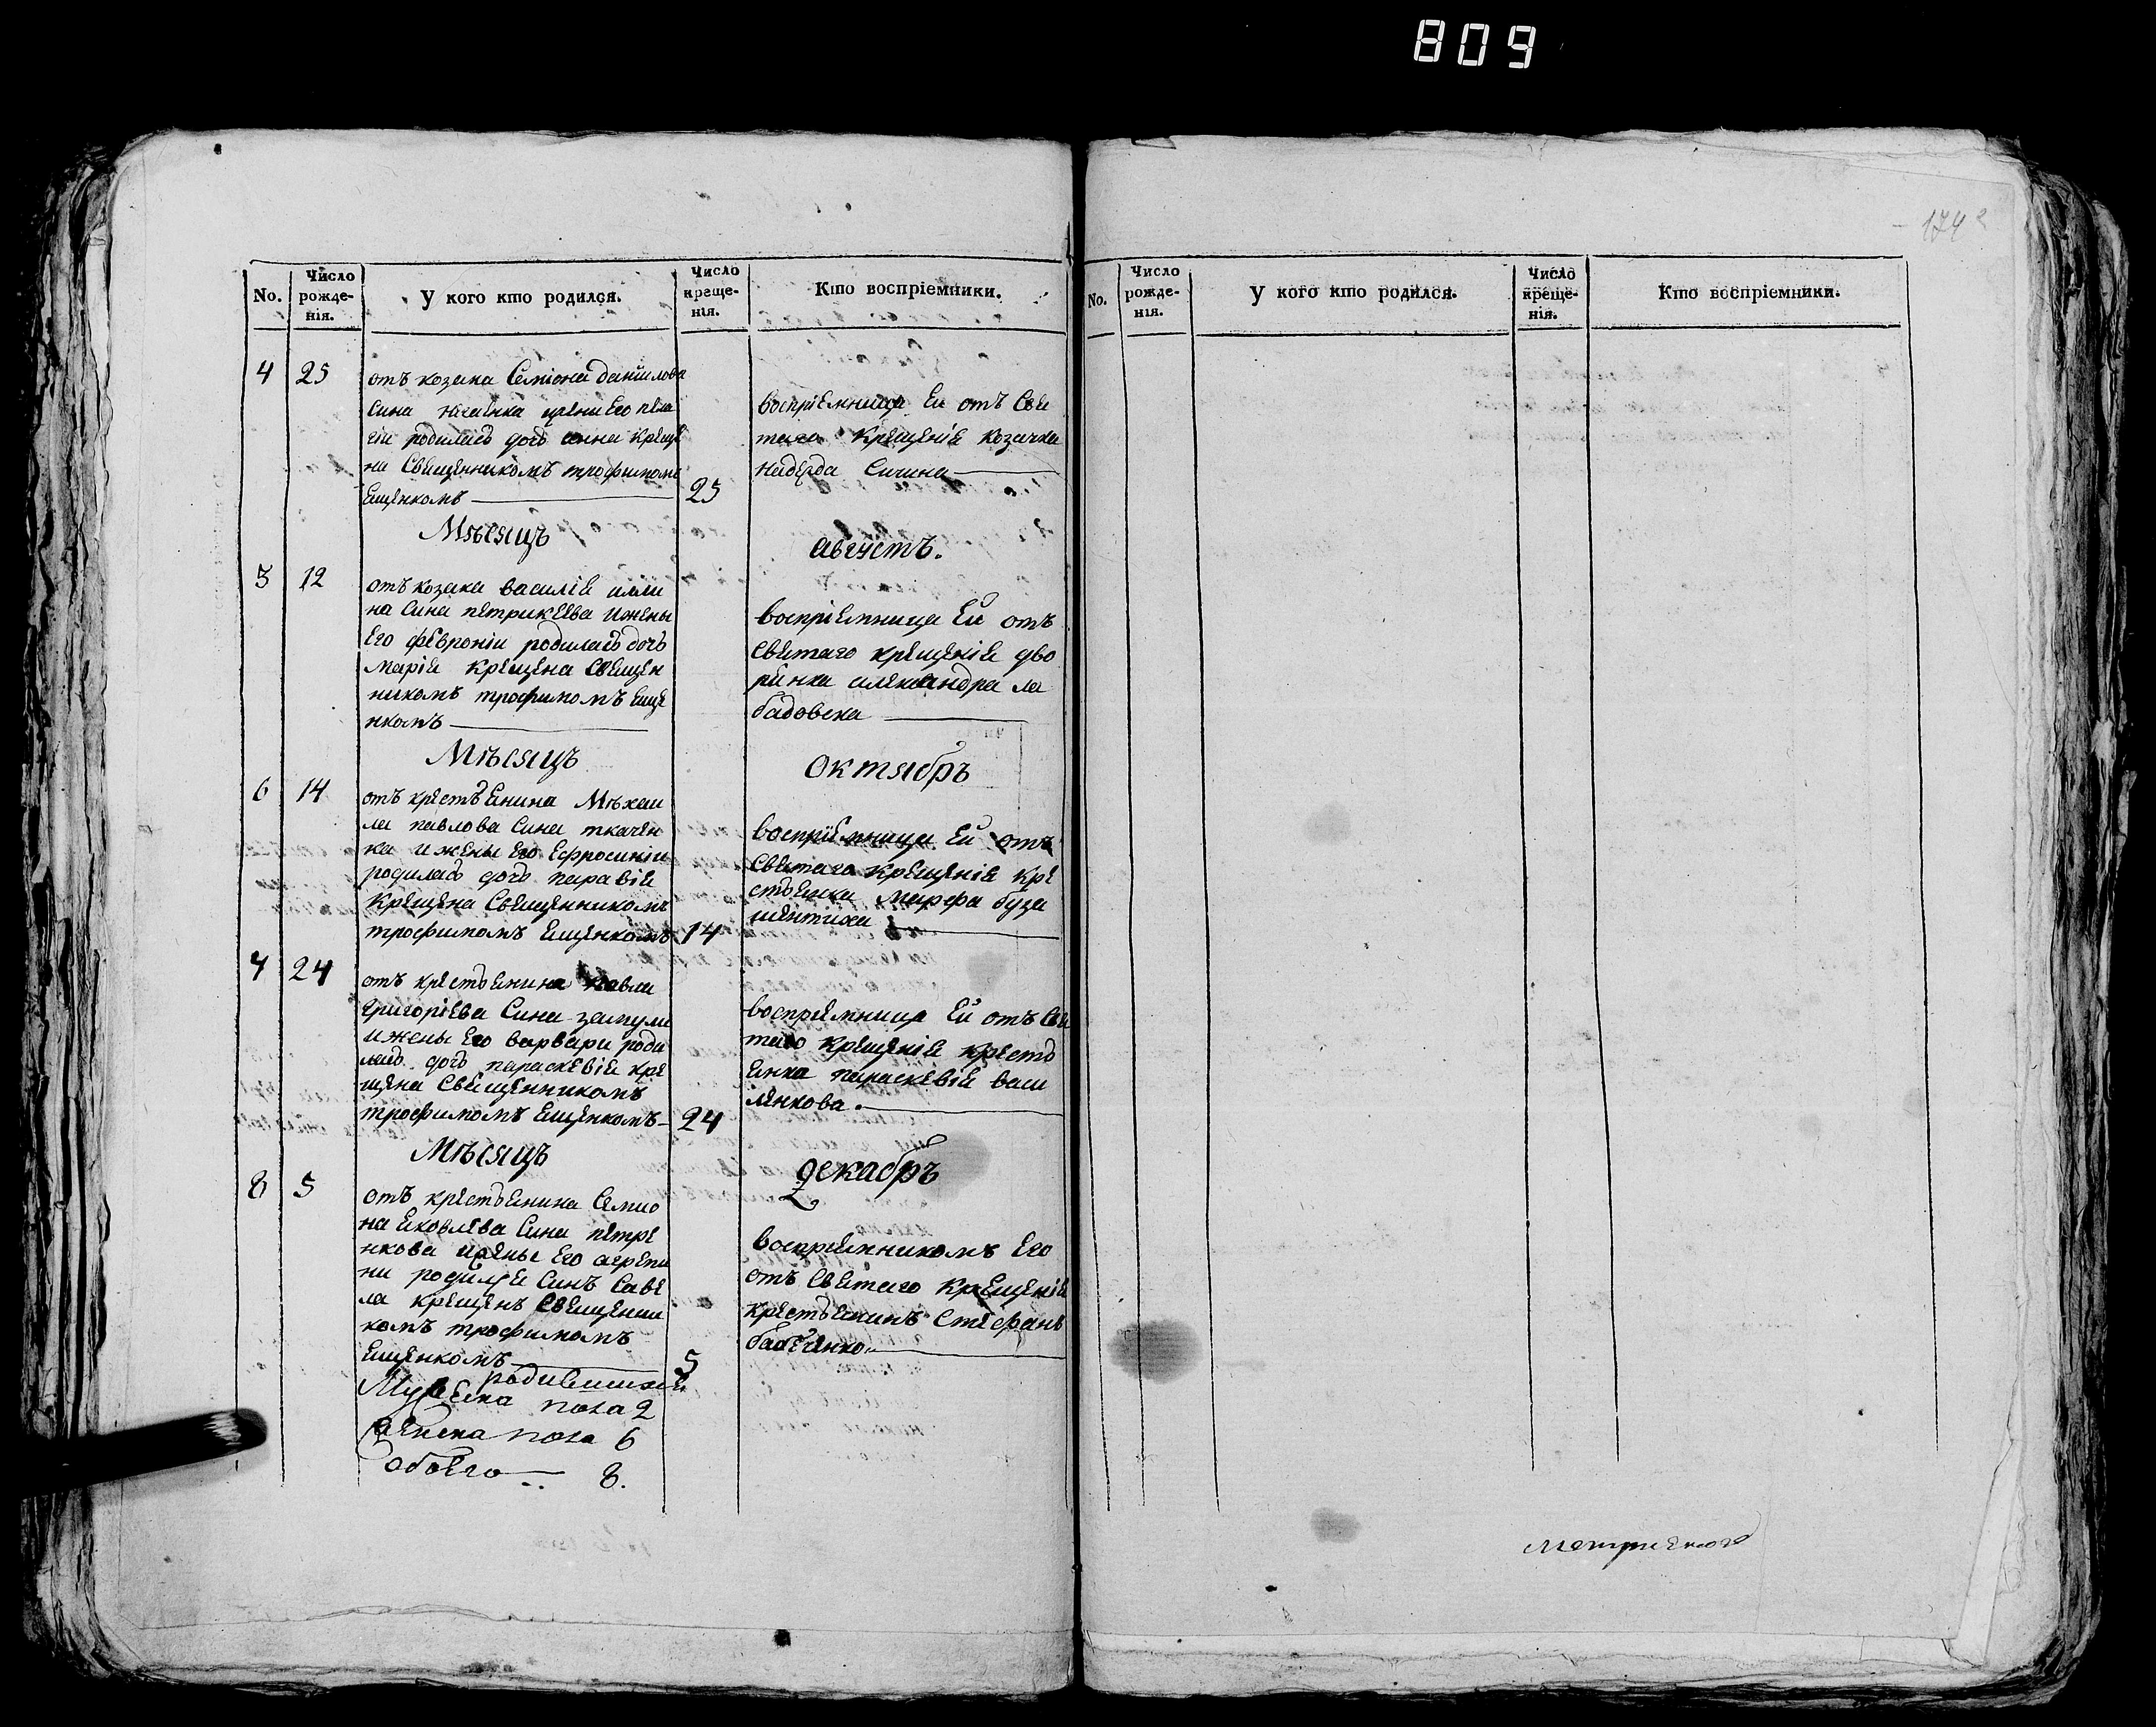 809
174
No.
Число рожде-нія.
У кого кто родился.
Число креще-нія.
Кто воспріемники.
4 25
отъ козака Семіона даніилова
сина ижени Его пела
гіи родилась дочь анна креще
на Священникомъ трофимомъ
Ещенкомъ
25
воспріемница Ей отъ Свя
таго Крещенія Козачка
надежда Сичина
Мѣсяцъ
августъ.
5 12
отъ козака василія
на Сина петрикеева ижены
Его февроніи родилась дочь
марія Крещена Священ
никомъ трофимомъ Еще
нкомъ
воспріемница Ей отъ
Святаго крещенія дво
рянка александра ла
бадовска
Мѣсяцъ
октябръ
6 14
отъ крестьянина Мѣхаи
ла павлова Сина ткачен
ка ижены Его Ефросиніи
родилась дочь
Крещена Священникомъ
трофимомъ Ещенкомъ
14
воспріемница Ей отъ
Святаго Крещенія кре
стьянка марфа буза
7 24
отъ крестьянина павла
григоріева Сина замули
ижены Его варвари роди
лась дочь параскевія кре
щена Священникомъ
трофимомъ Ещенкомъ
24
воспріемница Ей отъ Свя
таго крещенія кресть
янка параскевія васи
ленкова.
Мѣсяцъ
декабръ
8 5
отъ крестьянина Семио
на Яковлева Сина петре
нкова ижены Его агрепи
ни родился Синъ Саве
ла крещенъ Священни
комъ трофимомъ
Ещенкомъ
5
воспріемникомъ Его
отъ Святаго Крещенія
крестьянинъ Стефанъ
бабченко.
родившихся
Мужеска пола 2
женска пола 6
обоего 8.
No.
Число рожде-нія.
У кого кто родился.
Число креще-нія.
Кто воспріемники.